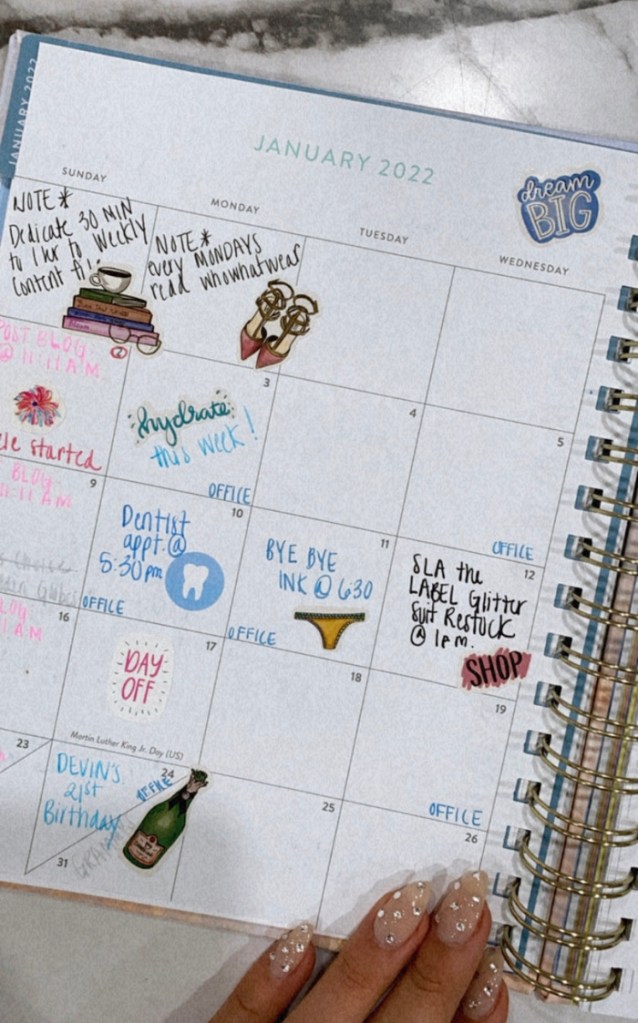 JANUARY 2022
JANUARY 2022
dream
BIG
SUNDAY
MONDAY
TUESDAY
WEDNESDAY
NOTE*
Dedicate 30 MIN
to 1 hr to weekly
content
NOTE*
every MONDAYS
read whowhatwear
POST BLOG
@ 11:11 A.M.
2
3
4
5
started
hydrate
this week!
OFFICE
OFFICE
9
10
11
12
BLOG
11:11 AM
Dentist
appt. @
5:30 pm
OFFICE
BYE BYE
INK @ 6:30
OFFICE
SLA the
LABEL Glitter
Suit Restock
@ 1 pm.
SHOP
16
17
18
19
BLOG
AM
DAY
OFF
Martin Luther King Jr. Day (US)
OFFICE
23
24
25
26
DEVIN'S
21st
Birthday
OFFICE
31